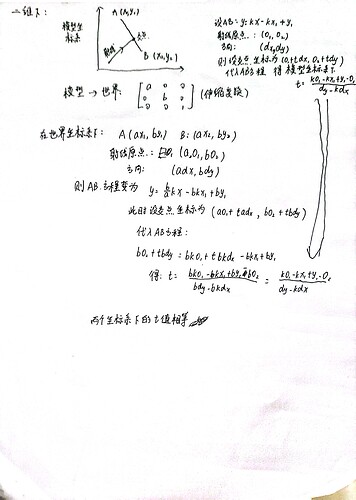 二维下:
模型坐标系
A (x₁,y₁)
交点
射线
B (x₂,y₂)
设AB: y=kx-kx₁+y₁
射线原点: (o₁, o₂)
方向: (dx,dy)
则设交点坐标为 (o₁+tdx, o₂+tdy)
代入AB方程 得 模型坐标系下
t= ko₁-kx₁+y₁-o₂ / dy-kdx
模型 → 世界: [a 0 0 0 b 0 0 0 1] (伸缩变换)
在世界坐标系下: A(ax₁, by₁) B: (ax₂, by₂)
射线原点: (ao₁, bo₂)
方向: (adx, bdy)
则AB方程变为 y= b/a kx - bkx₁ + by₁
此时设交点坐标为 (ao₁+tadx, bo₂+tbdy)
代入AB方程:
bo₂+tbdy = bko₁+tbkdx-bkx₁+by₁
得: t= bko₁-bkx₁+by₁-bo₂ / bdy-bkdx = ko₁-kx₁+y₁-o₂ / dy-kdx
两个坐标系下的t值相等